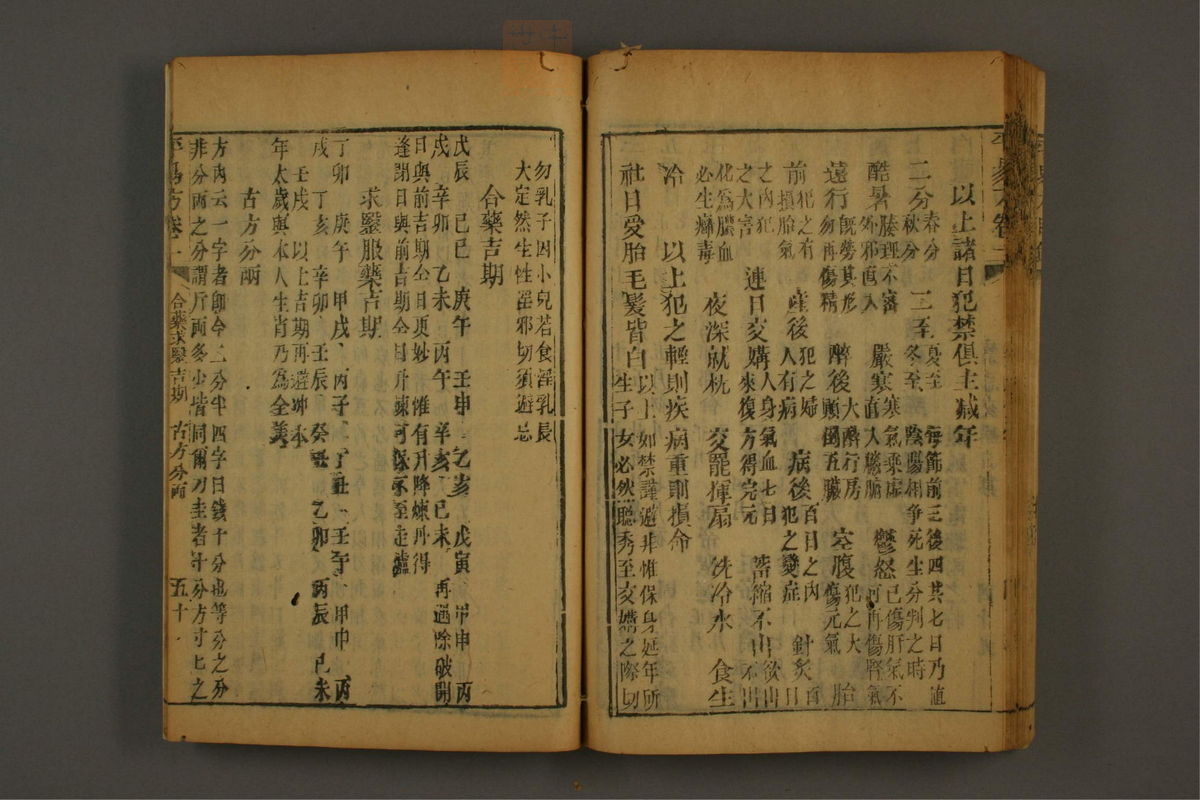 以上諸日犯禁俱主减年
二分春分秋分　二至夏至冬至每節前三後四其七日乃值陰陽相爭死生分判之時
酷暑腠理不審外邪直入　嚴寒寒氣乘虛直入臟腑　鬱怒已傷肝氣不可再傷腎氣
遠行既勞其形勿再傷精　醉後大醉行房顛倒五臟　空腹犯之大傷元氣　胎
前犯之有損胎氣　産後犯之婦人有病　病後百日之內犯之變症　針灸百日
之內犯之大害　連日交媾人身氣血七日來復方得完元　畜縮不出欲出不出
化為膿血必生癱毒　夜深就枕　交罷揮扇　洗冷水　食生
冷　以上犯之輕則疾病重則損命
社日受胎毛髮皆白生子女必然聰秀至交媾之際切
以上如禁謹避非惟保身延年所
勿乳子因小兒若食淫乳長
大定然生性滛邪切須避忌
合藥吉期
戊辰　己巳　庚午　壬申　乙亥　戊寅　甲申　丙
戌　辛卯　乙未　丙午　辛亥　己未　再遇除破開
日與前吉期仝日更妙　惟有升降煉丹得
逢閉日與前吉期仝日升煉可保永至走爐
求毉服藥吉期
丁卯　庚午　甲戌　丙子　丁丑　壬午　甲申　丙
戌　丁亥　辛卯　壬辰　癸　乙卯　丙辰　己未
壬戌　以上吉期再避
年太歲與本人生肖乃為全美
古方分兩
方內云一字者即今二分半四字曰錢十分也等分之分
非分兩之分謂斤兩多少皆同爾刀圭者十分方寸七之
平易方卷一　合藥求毉吉期　古方分兩　五十